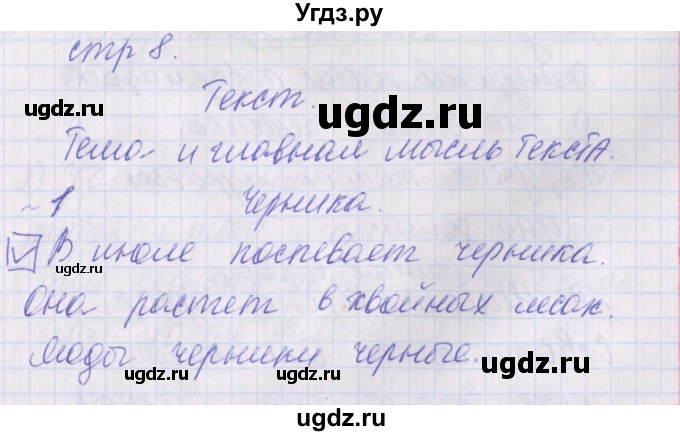 Угдз.ру
стр 8.
ugdz.ru
ugdz.ru
Текст.
ugdz.ru
Тема и главная мысль текстА.
ugdz.ru
~1 Черника.
В июле поспевает черника.
ugdz.ru
ugdz.ru
Она растет в хвойных лесах.
Плоды черники черные.
ugdz.ru
ugdz.ru
ugdz.ru
ugdz.ru